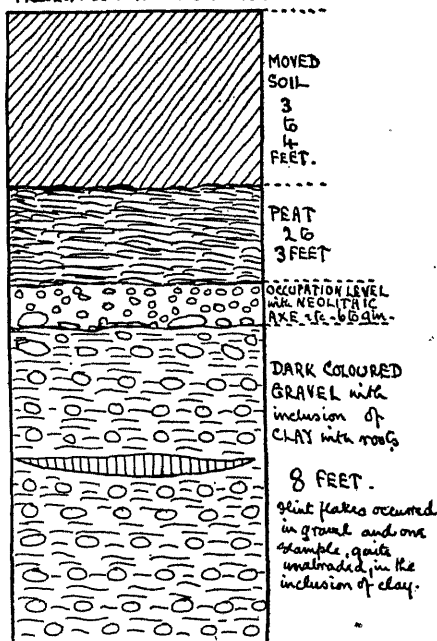 MOVED
SOIL
3
to
4
FEET.
PEAT
2 to
3 FEET
OCCUPATION LEVEL
with NEOLITHIC
AXE etc. 6 to 9 in.
DARK COLOURED
GRAVEL with
inclusion of
CLAY with roots
8 FEET.
Flint flakes occurred
in gravel and one
example, quite
unabraded, in the
inclusion of clay.